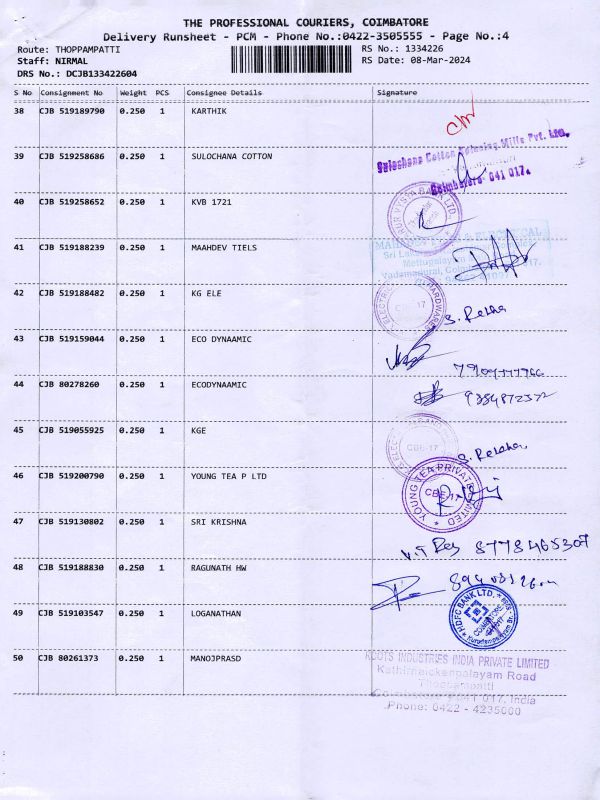 THE PROFESSIONAL COURIERS, COIMBATORE
Delivery Runsheet - PCM - Phone No.:0422-3505555 - Page No.:4
Route: THOPPAMPATTI RS No.: 1334226
Staff: NIRMAL RS Date: 08-Mar-2024
DRS No.: DCJB133422604
S No Consignment No Weight PCS Consignee Details Signature
38 CJB 519189790 0.250 1 KARTHIK
Sulochana Cotton Spinning Mills Pvt. Ltd.,
39 CJB 519258686 0.250 1 SULOCHANA COTTON
Coimbatore 641 017.
40 CJB 519258652 0.250 1 KVB 1721
VYSYA BANK LTD.
41 CJB 519188239 0.250 1 MAAHDEV TIELS
42 CJB 519188482 0.250 1 KG ELE
HARDWARES
CBE-17
S. Rekha
43 CJB 519159044 0.250 1 ECO DYNAAMIC
44 CJB 80278260 0.250 1 ECODYNAAMIC
45 CJB 519055925 0.250 1 KGE
CBE-17
S. Rekha
46 CJB 519200790 0.250 1 YOUNG TEA P LTD
YOUNG TEA PRIVATE LIMITED
CBE-17
47 CJB 519130802 0.250 1 SRI KRISHNA
8778465307
48 CJB 519188830 0.250 1 RAGUNATH HW
HDFC BANK LTD.
49 CJB 519103547 0.250 1 LOGANATHAN
50 CJB 80261373 0.250 1 MANOJPRASD
ROOTS INDUSTRIES INDIA PRIVATE LIMITED
Kathirnaickenpalayam Road
Thoppampatti
Coimbatore 641 017, India
Phone: 0422 - 4235000